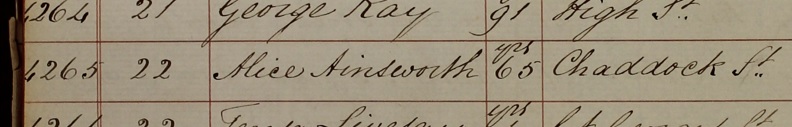 4264 21 George Kay 91 High St.
4265 22 Alice Ainsworth yrs 65 Chaddock St.
22 yrs St